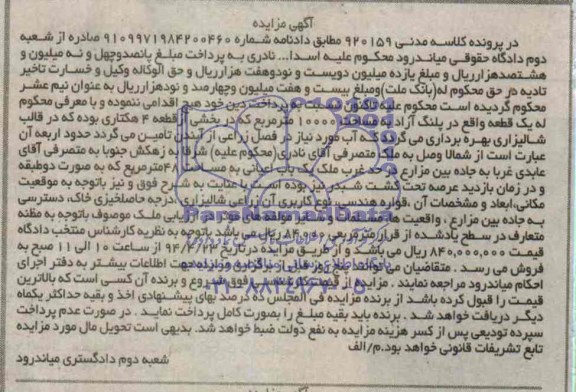 آگهی مزایده
در پرونده کلاسه مدنی ۹۲۰۱۵۹ مطابق دادنامه شماره ۹۱۰۹۹۷۱۹۸۴۲۰۰۴۶۰ صادره از شعبه
دوم دادگاه حقوقی میاندرود محکوم علیه اسدا... نادری به پرداخت مبلغ پانصدوچهل و نه میلیون و
هشتصدهزارریال و مبلغ یازده میلیون دویست و نودوهفت هزارریال و حق الوکاله وکیل و خسارت تاخیر
تادیه در حق محکوم له(بانک ملت)ومبلغ بیست و هفت میلیون وچهارصد و نودهزارریال به عنوان نیم عشر
محکوم گردیده است محکوم علیه تاکنون نسبت به پرداخت دین خود هیچ اقدامی ننموده و با معرفی محکوم
له یک قطعه واقع در پلنگ آزاد به مساحت ۱۰۰۰۰ مترمربع که در بخشی از قطعه ۴ هکتاری بوده که در قالب
شالیزاری بهره برداری می گردد که آب مورد نیاز در فصل زراعی از آببندان تامین می گردد حدود اربعه آن
عبارت است از شمالا وصل به ملک متصرفی آقای نادری(محکوم علیه) شرقا به زهکش جنوبا به متصرفی آقای
عابدی غربا به جاده بین مزارع در حد غرب ملک یک باب به مساحت مترمربع که به صورت دوطبقه
و در زمان بازدید عرصه تحت کشت شبدر نیز بوده است با عنایت به شرح فوق و نیز باتوجه به موقعیت
مکانی،ابعاد و مشخصات آن ،قواره هندسی، نوع کاربری آن زراعی شالیزاری ،درجه حاصلخیزی خاک، دسترسی
به جاده بین مزارع ، واقعیت های ملک موصوف باتوجه به مظنه
متعارف در سطح یادشده از قرار مترمربعی ۸۴،۰۰۰ ریال می باشد باتوجه به نظریه کارشناس منتخب دادگاه
قیمت ۸۴۰،۰۰۰،۰۰۰ ریال می باشد و از طریق مزایده در تاریخ ۹۴/۴/۲۳ از ساعت ۱۰ الی ۱۱ صبح به
فروش می رسد . متقاضیان می توانند پنج روز قبل از برگزاری مزایده جهت اطلاعات بیشتر به دفتر اجرای
احکام میاندرود مراجعه نمایند . مزایده از قیمت کارشناسی فوق شروع و برنده آن کسی است که بالاترین
قیمت را قبول کرده باشد از برنده مزایده فی المجلس ده درصد بهای پیشنهادی اخذ و بقیه حداکثر یکماه
دیگر دریافت خواهد شد . برنده باید بقیه مبلغ را بصورت کامل پرداخت نمایید . در صورت عدم پرداخت
سپرده تودیعی پس از کسر هزینه مزایده به نفع دولت ضبط خواهد شد. بدیهی است تحویل مال مورد مزایده
تابع تشریفات قانونی خواهد بود.م/الف
شعبه دوم دادگستری میاندرود
ParsNamadData